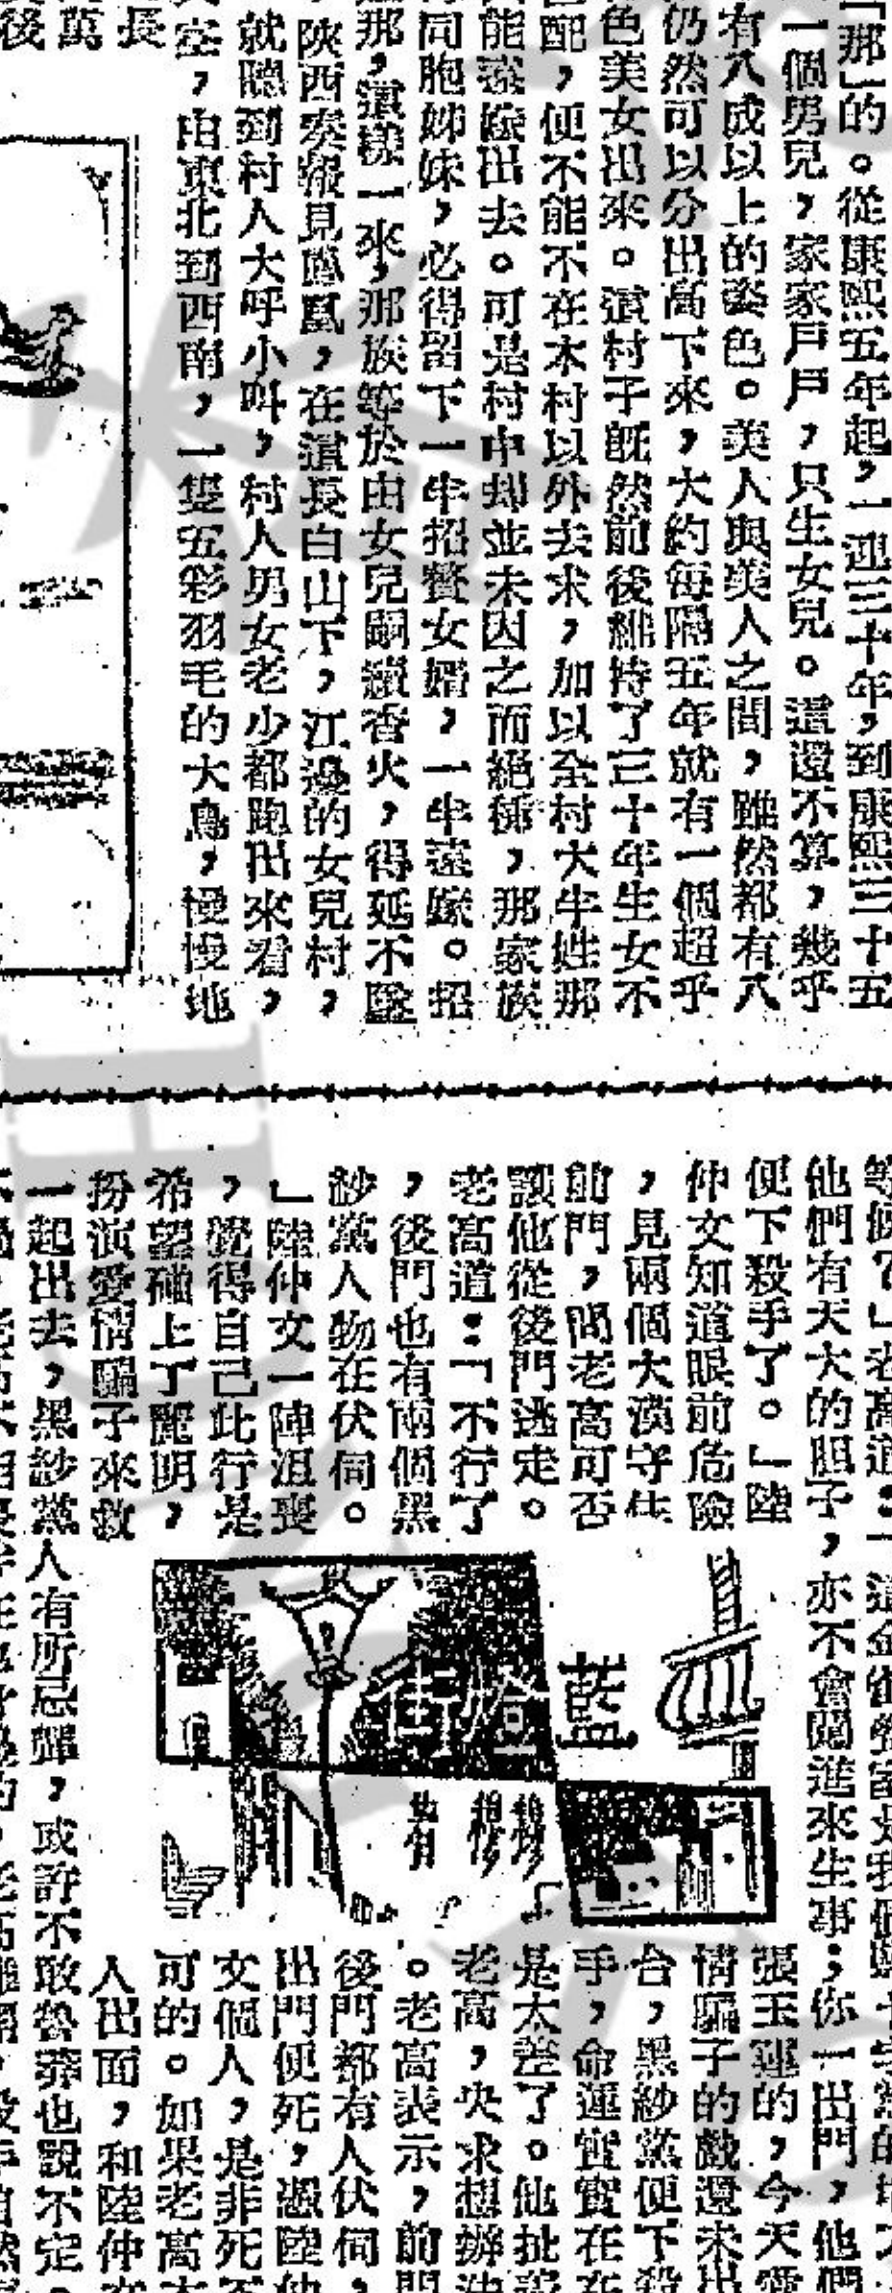 「那」的。從康熙五年起，一連三十年，到康熙三十五
一個男兒，家家戶戶，只生女兒。這還不算，幾乎
有八成以上的姿色。美人與美人之間，雖然都有八
仍然可以分出高下來，大約每隔五年就有一個超乎
色美女出來。這村子既然前後維持了三十年生女不
配，便不能不在本村以外去求，加以全村大半姓那
能遠嫁出去。可是村中却並未因之而絕種，那家族
同胞姊妹，必得留下一半招贅女婿，一半遠嫁。招
那，這樣一來，那族等於由女兒嗣續香火，得延不墜
陝西奏報見鳳凰，在這長白山下，江邊的女兒村，
就聽到村人大呼小叫，村人男女老少都跑出來看，
空，由東北到西南，一隻五彩羽毛的大鳥，慢慢地
長
萬
後
老高道：「這
他們有天大的胆子，亦不會闖進來生事；你一出門，他們
便下殺手了。」陸
仲文知道眼前危險
，見兩個大漢守住
前門，問老高可否
讓他從後門逃走。
老高道：「不行了
，後門也有兩個黑
紗黨人物在伏伺。
」陸仲文一陣沮喪
，覺得自己此行是
希望碰上了麗明，
扮演愛情騙子來救
藍
街燈
張玉蓮的，今天
情騙子的戲還未出
台，黑紗黨便下殺
手，命運實實在在
是太差了。他扯
老高，央求想辦法
。老高表示，前門
後門都有人伏伺，
出門便死，憑陸仲
文個人，是非死不
可的。如果老高本
人出面，和陸仲文
一起出去，黑紗黨人有所忌憚，或許不敢魯莽也說不定。